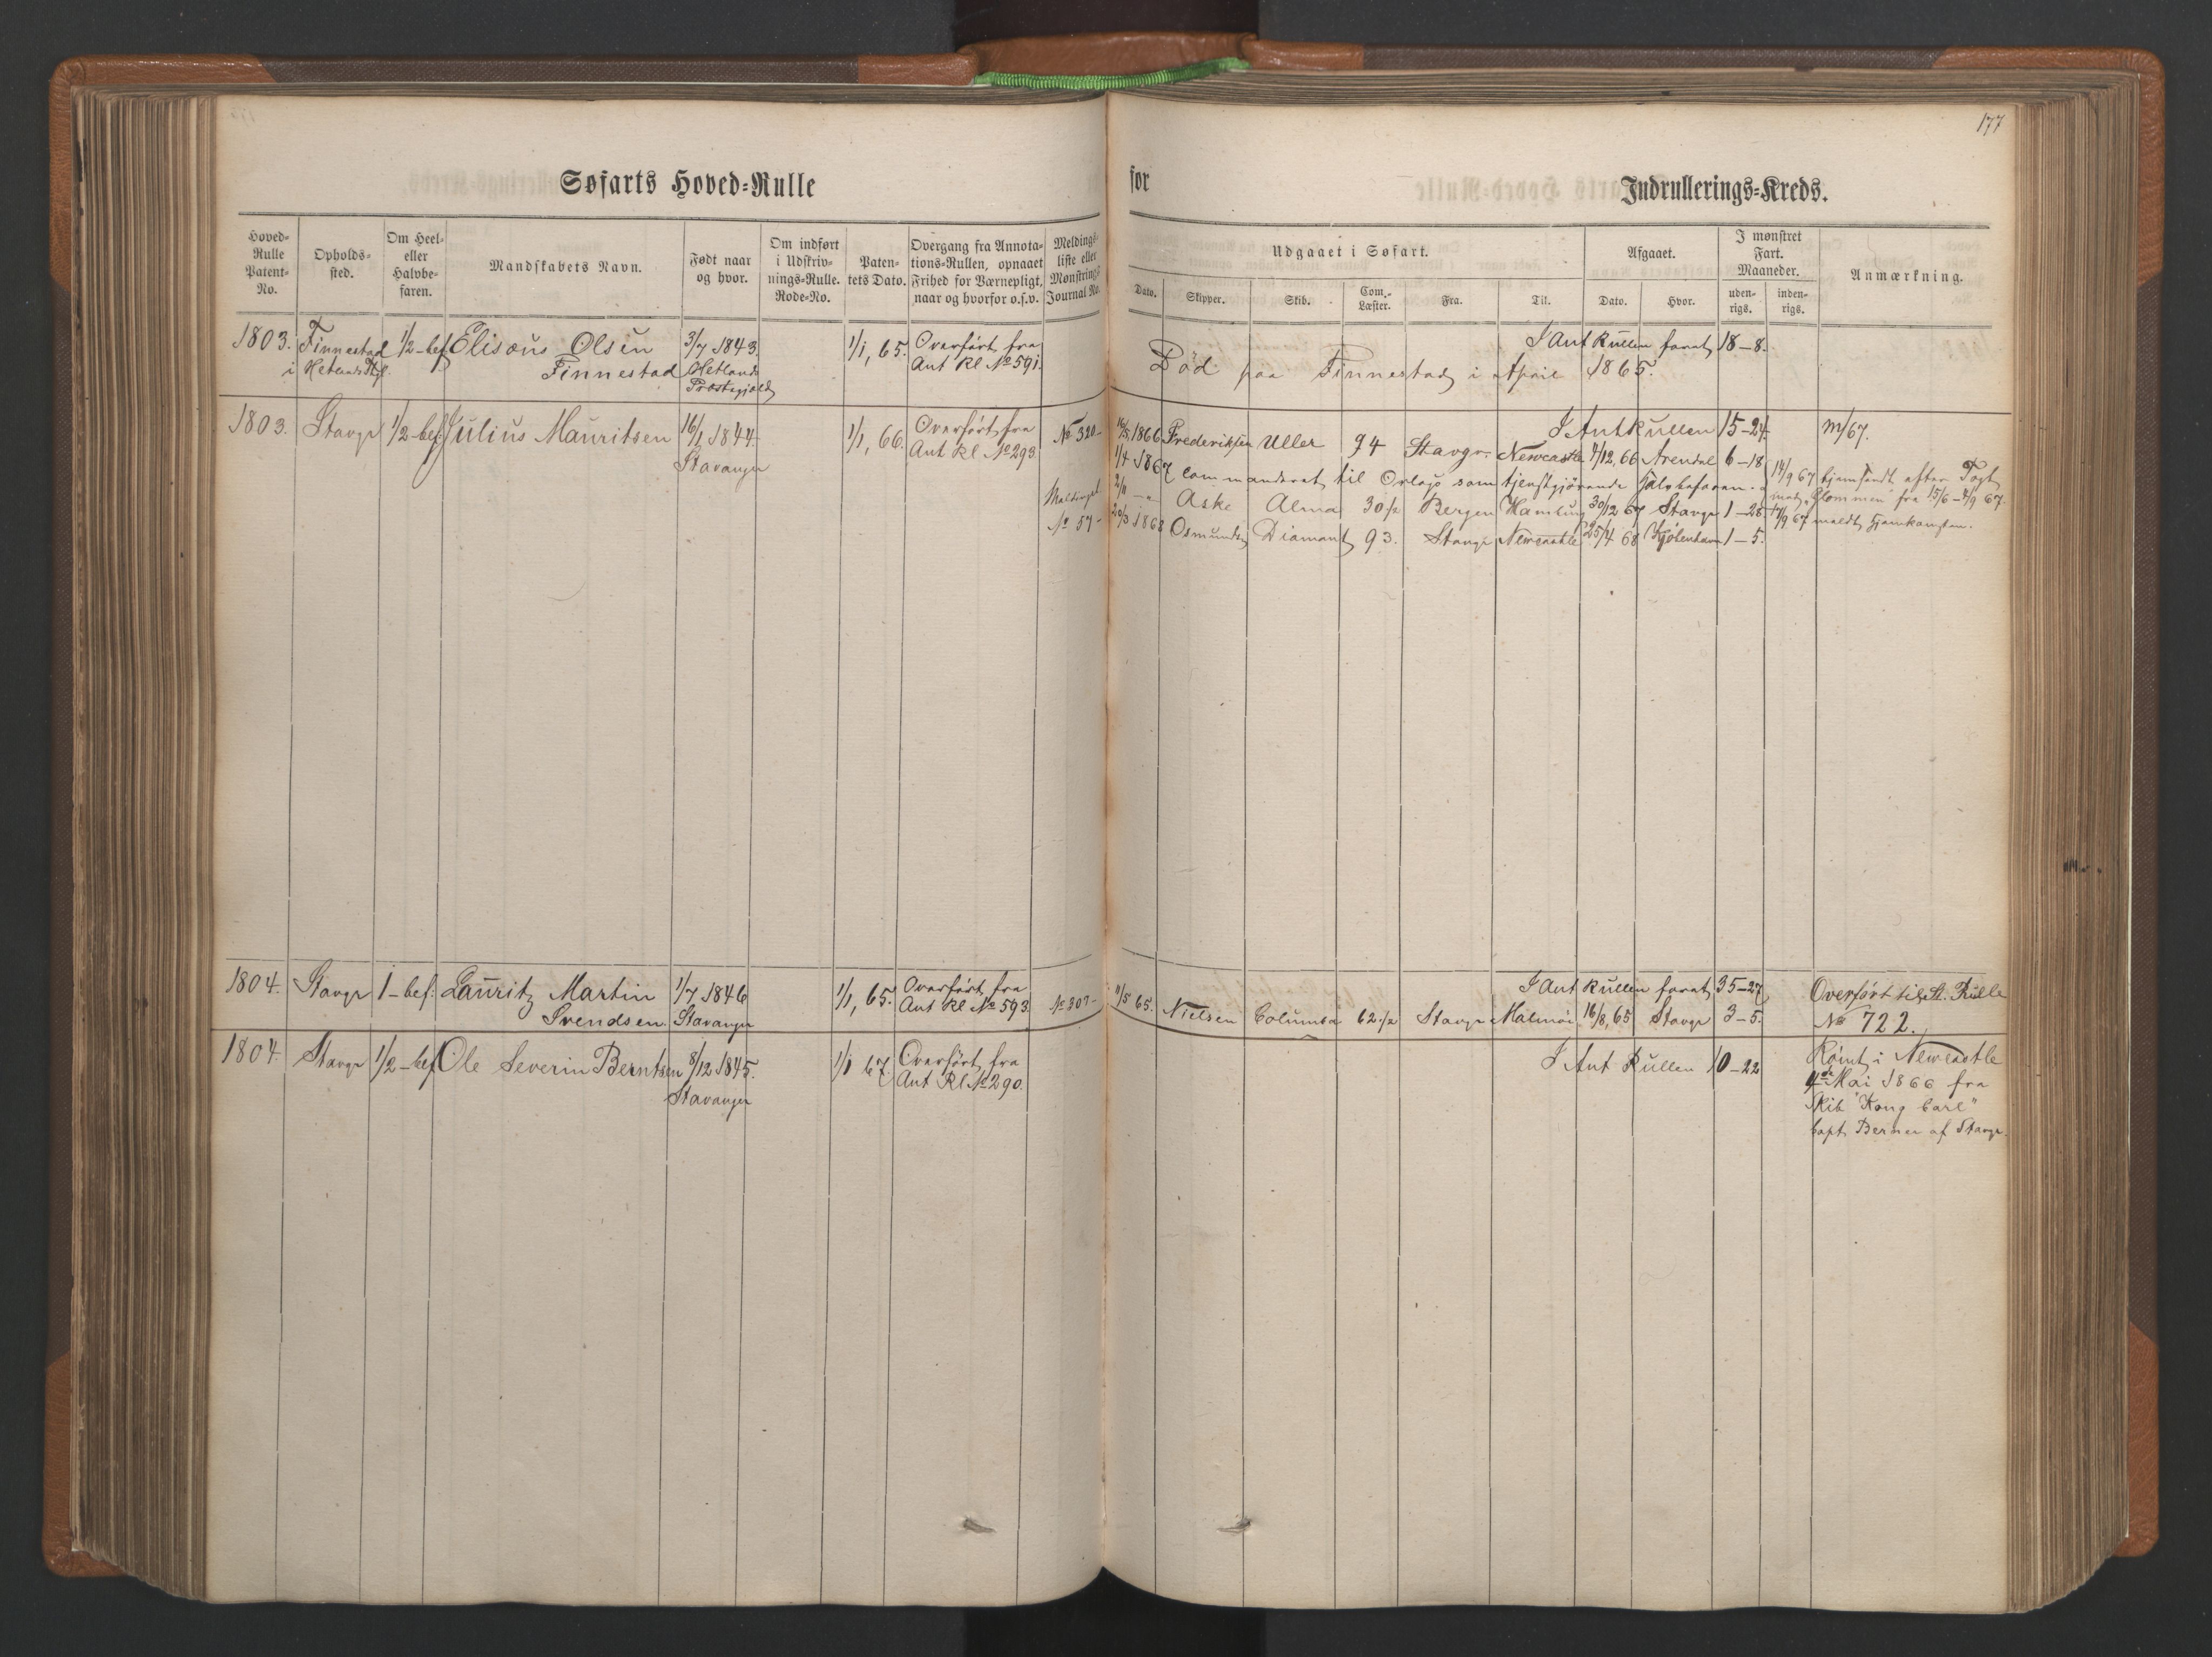 177
Søfarts Hoved-Rulle
for
Indrullerings-Kreds.
Hoved-Rulle Patent-No.
Opholds-sted.
Om Heel- eller Halvbe-faren.
Mandskabets Navn.
Født naar og hvor.
Om indført i Udskriv-nings-Rulle. Rode-No.
Paten-tets Dato.
Overgang fra Annota-tions-Rullen, opnaaet Frihed for Værnepligt, naar og hvorfor o.s.v.
Meldings-liste eller Mønstrings-Journal No.
Udgaaet i Søfart.
Dato.
Skipper.
Skib.
Com.-Læster.
Fra.
Til.
Afgaaet.
Dato.
Hvor.
I mønstret Fart. Maaneder.
uden-rigs.
inden-rigs.
Anmærkning.
1803. Finnestad 1/2-bef. Elisæus Olsen 3/7 1843. 1/1, 65. Overført fra I Ant Rullen faret 18-8.
i Hetlands Pgl. Finnestad Hetlands Ant Rl No 591.
Præstegjeld Død paa Finnestad i April 1865.
1803. Stavgr 1/2-bef. Julius Mauritsen 16/1 1844. 1/1, 66. Overført fra No 320- I Ant Rullen 15-24. m/67.
Stavanger Ant Rl No 293
16/5 1866 Frederiksen Uller 94 Stavgr. Newcastle 4/12, 66 Arendal 6-18
1/4 1867 commanderet til Orlogs som tjenstgjørende halvbefaren. 14/9 67 hjemsendt efter Togt
Meldingsl. 2/11 -"- Aske Alma 30 1/2 Bergen Hamburg 30/12 67 Stavgr 1-28 med "Glommen" fra 15/6-4/9 67.
No 57- 20/3 1868 Osmundsen Diamant 93. Stavgr Newcastle 25/4 68 Kjøbenhavn 1-5. 17/9 67 meldt hjemkomsten.
1804. Stavgr 1-bef. Lauritz Martin 1/7 1846 1/1, 65. Overført fra I Ant Rullen faret 35-27 Overført til St. Rulle
Svendsen. Stavanger Ant Rl No 593 No 307- 11/5 65. Nielsen Columba 62 1/2 Stavgr Malmø 16/8, 65 Stavgr 3-5. No 722.
1804. Stavgr 1/2-bef. Ole Severin Berntsen 8/12 1845. 1/1 67. Overført fra I Ant Rullen 10-22 Rømt i Newcastle
Stavanger Ant Rl No 290. 4de Mai 1866 fra
Skib "Kong Carl"
Capt. Berner af Stavgr.